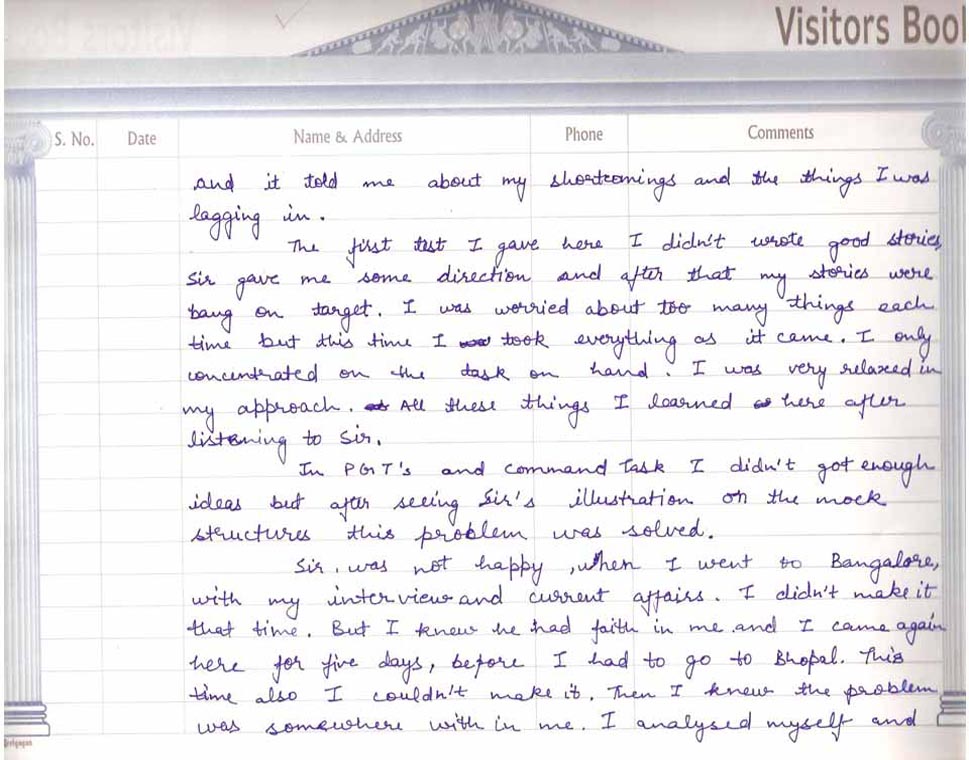 Visitors Boo
S. No. Date Name & Address Phone Comments
and it told me about my shortcomings and the things I was
lagging in.
The first test I gave here I didn't wrote good stories,
Sir gave me some direction and after that my stories were
bang on target. I was worried about too many things each
time but this time I took everything as it came. I only
concentrated on the task on hand. I was very relaxed in
my approach. All these things I learned here after
listening to Sir.
In PGT's and command Task I didn't got enough
ideas but after seeing Sir's illustration on the mock
structures this problem was solved.
Sir, was not happy, when I went to Bangalore,
with my interview and current affairs. I didn't make it
that time. But I knew he had faith in me and I came again
here for five days, before I had to go to Bhopal. This
time also I couldn't make it. Then I knew the problem
was somewhere with in me. I analysed myself and